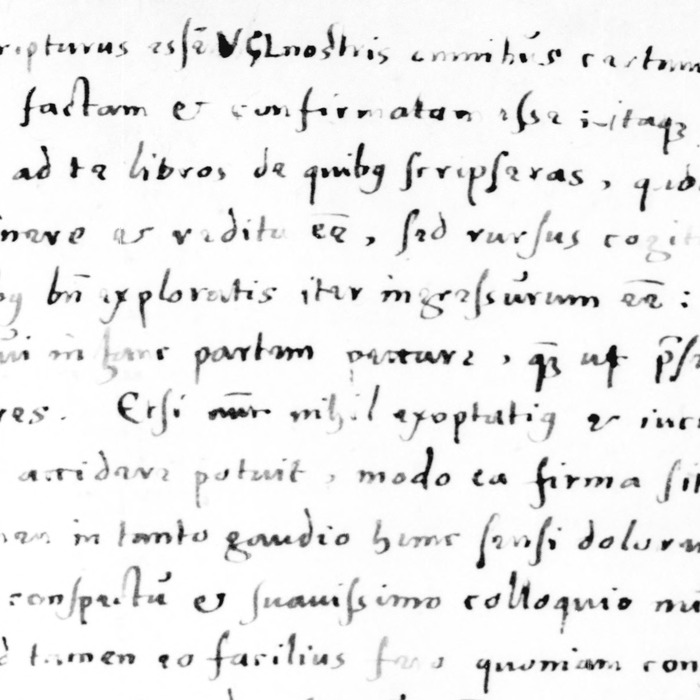 ripturus essē VCL nostris omnibus certum
factam et confirmatam esse itaqȝ
ad te libros de quibȝ scripseras, quib
nere ac reditu eē, sed rursus cogit
bn̄ exploratis iter ingressurum eē:
in hanc partem peccare, qȝ ut p̄s
res. Etsi nunc nihil exoptatiȝ et iuc
accidere potuit, modo ea firma sit
in tanto gaudio hunc sensi dolorem
conspectū et suauissimo colloquio
tamen eo facilius fero quoniam con